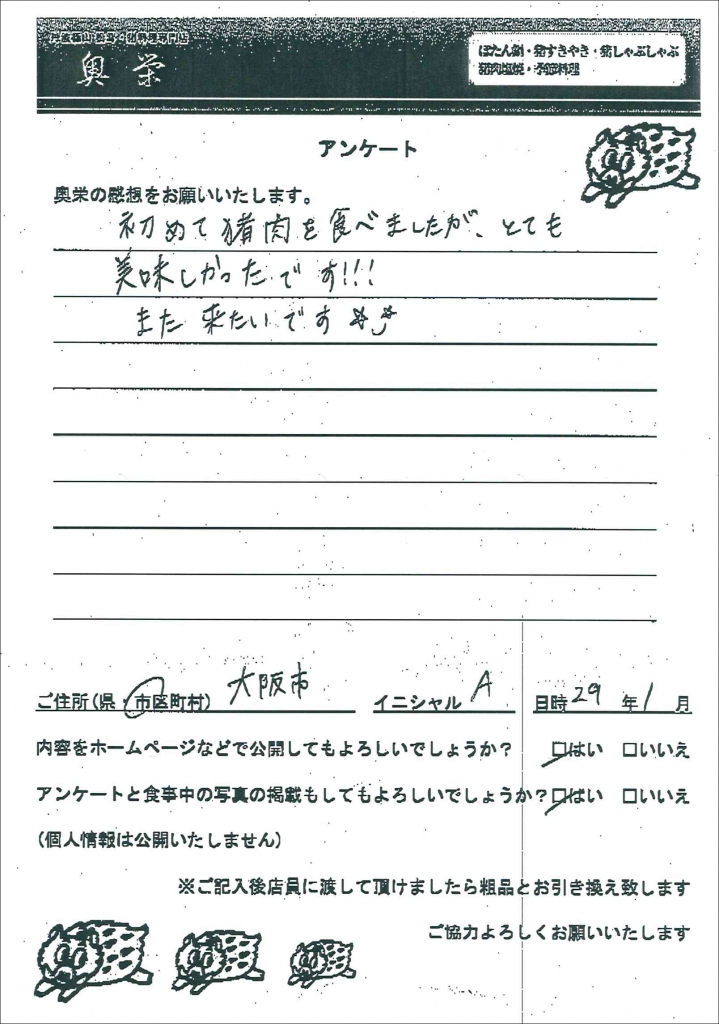 丹波篠山 松茸・猪料理専門店
奥栄
ぼたん鍋・猪すきやき・猪しゃぶしゃぶ
猪肉塩焼・季節料理
アンケート
奥栄の感想をお願いいたします。
初めて猪肉を食べましたが、とても
美味しかったです!!!
また来たいです
ご住所(県・市区町村) 大阪市 イニシャル A 日時 29年1月
内容をホームページなどで公開してもよろしいでしょうか? ☑はい □いいえ
アンケートと食事中の写真の掲載もしてもよろしいでしょうか?☑はい □いいえ
(個人情報は公開いたしません)
※ご記入後店員に渡して頂けましたら粗品とお引き換え致します
ご協力よろしくお願いいたします